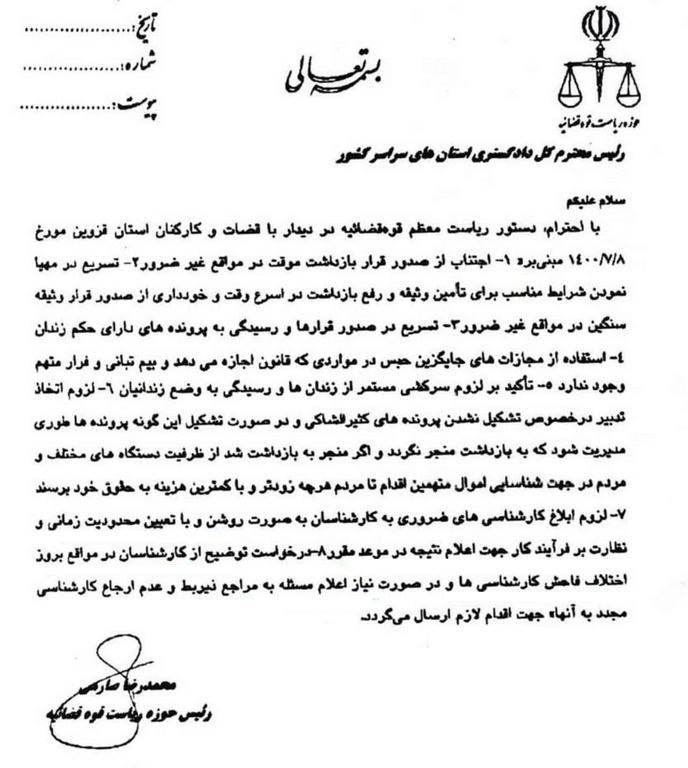 تاریخ:......................
شماره:......................
پیوست:......................
بسمه تعالی
حوزه ریاست قوه قضائیه
رئیس محترم کل دادگستری استان های سراسر کشور
سلام علیکم
با احترام، دستور ریاست معظم قوه‌قضائیه در دیدار با قضات و کارکنان استان قزوین مورخ
۱۴۰۰/۷/۸ مبنی‌بر« ۱- اجتناب از صدور قرار بازداشت موقت در مواقع غیر ضرور۲- تسریع در مهیا
نمودن شرایط مناسب برای تأمین وثیقه و رفع بازداشت در اسرع وقت و خودداری از صدور قرار وثیقه
سنگین در مواقع غیر ضرور۳- تسریع در صدور قرارها و رسیدگی به پرونده های دارای حکم زندان
۴- استفاده از مجازات های جایگزین حبس در مواردی که قانون اجازه می دهد و بیم تبانی و فرار متهم
وجود ندارد ۵- تأکید بر لزوم سرکشی مستمر از زندان ها و رسیدگی به وضع زندانیان ۶- لزوم اتخاذ
تدبیر درخصوص تشکیل نشدن پرونده های کثیرالشاکی و در صورت تشکیل این گونه پرونده ها طوری
مدیریت شود که به بازداشت منجر نگردد و اگر منجر به بازداشت شد از ظرفیت دستگاه های مختلف و
مردم در جهت شناسایی اموال متهمین اقدام تا مردم هرچه زودتر و با کمترین هزینه به حقوق خود برسند
۷- لزوم ابلاغ کارشناسی های ضروری به کارشناسان به صورت روشن و با تعیین محدودیت زمانی و
نظارت بر فرآیند کار جهت اعلام نتیجه در موعد مقرر۸-درخواست توضیح از کارشناسان در مواقع بروز
اختلاف فاحش کارشناسی ها و در صورت نیاز اعلام مسئله به مراجع ذیربط و عدم ارجاع کارشناسی
مجدد به آنها» جهت اقدام لازم ارسال می‌گردد.
محمدرضا صارمی
رئیس حوزه ریاست قوه قضائیه